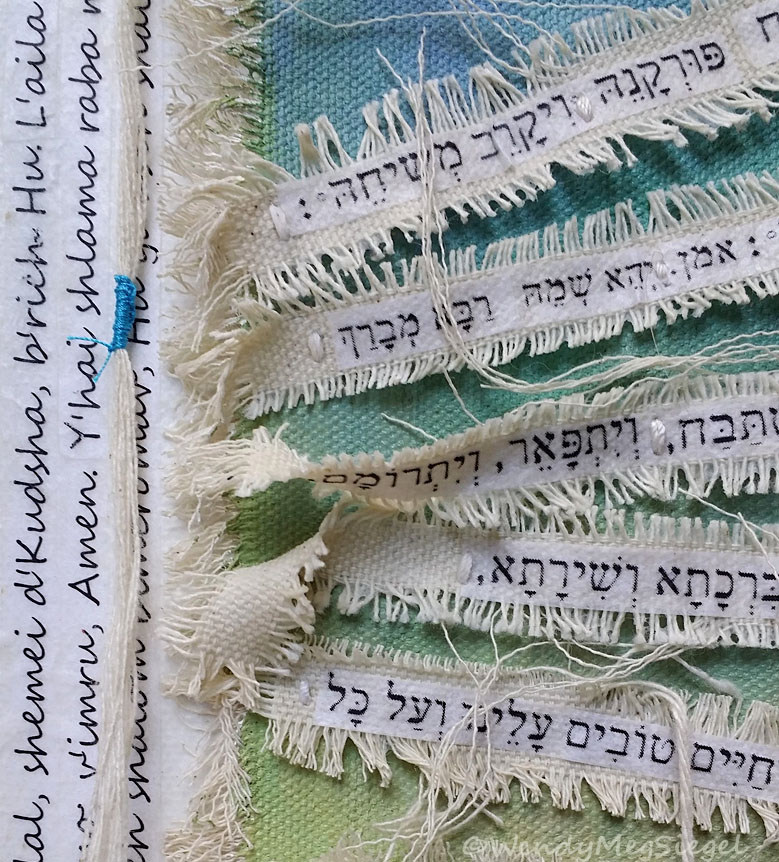 shemei d'Kudsha, b'rich Hu. L'aila
v'imru, Amen. Y'hai shlama raba
shalom bimromav, Hu
פּוּרְקָנֵהּ וִיקָרֵב מְשִׁיחֵהּ:
אמן. יְהֵא שְׁמֵהּ רַבָּא מְבָרַךְ
וְיִתְפָּאֵר, וְיִתְרוֹמַם
בִּרְכָתָא וְשִׁירָתָא,
חַיִּים טוֹבִים עָלֵינוּ וְעַל כָּל
©WendyMegSiegel